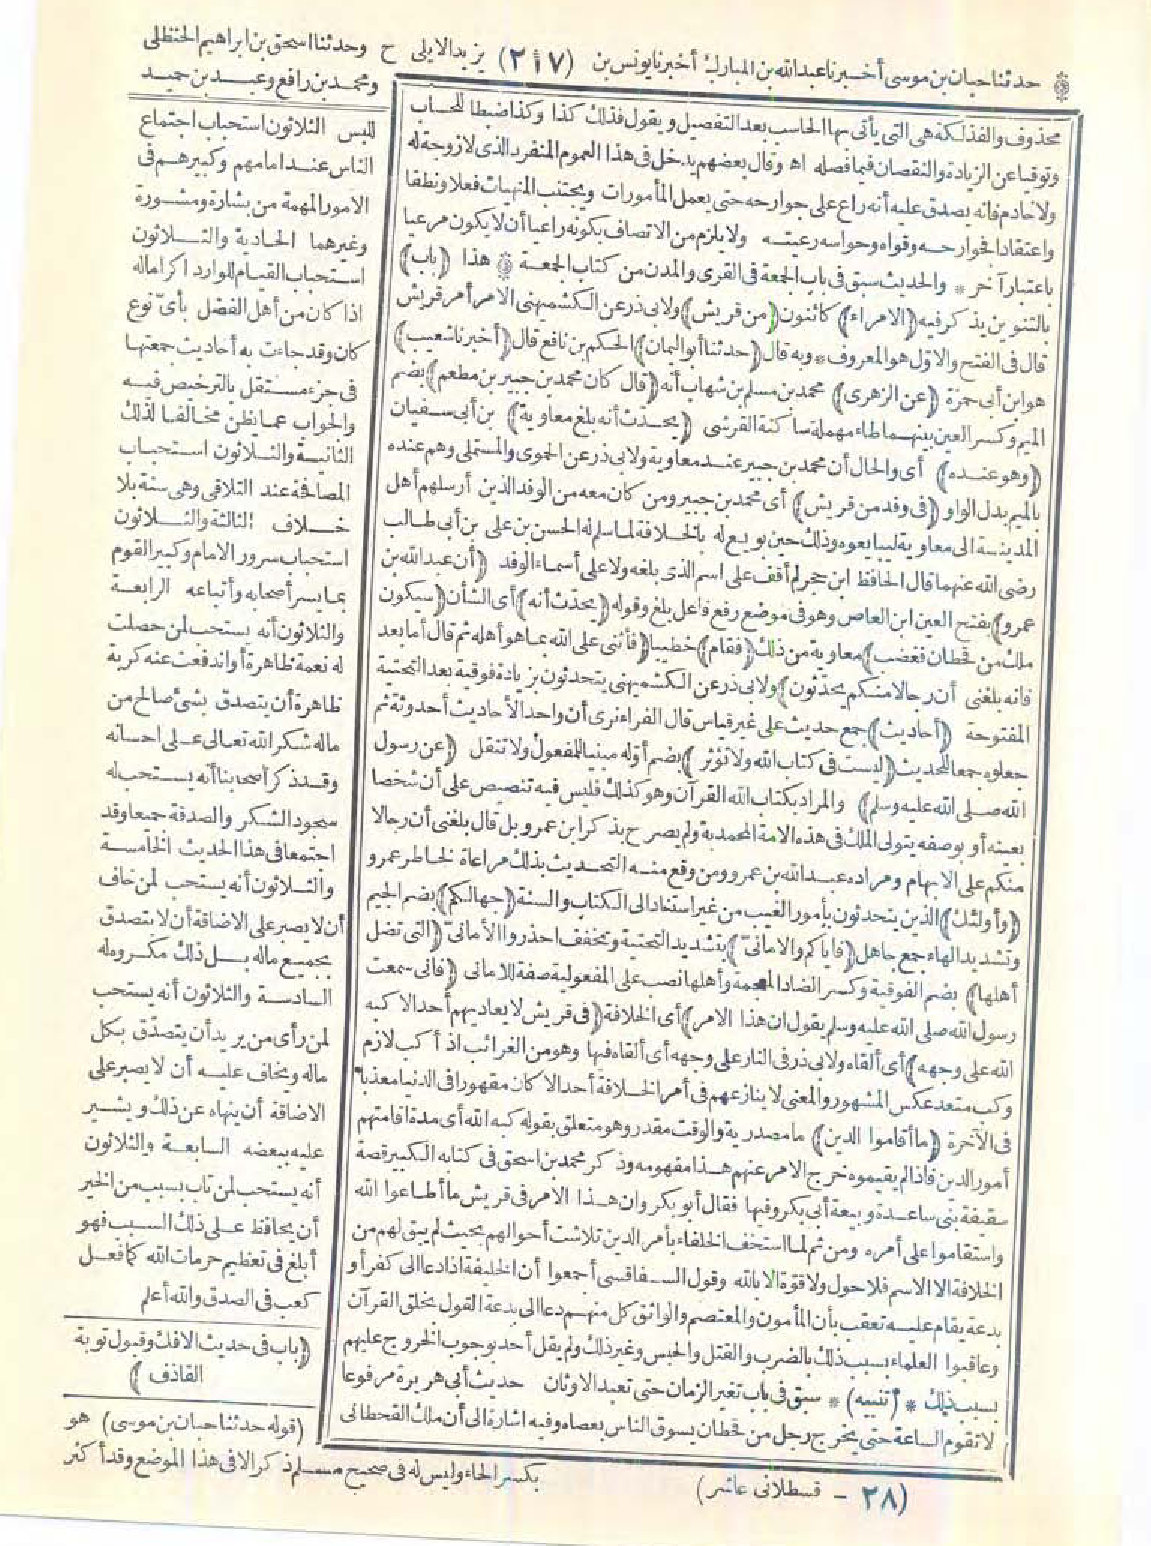 * حدثنا حبان بن موسى أخبرنا عبد الله بن المبارك أخبرنا يونس بن (٢١٧) يزيد الايلى ح وحدثنا اسحق بن ابراهيم الحنظلى
ومحمد بن رافع وعبد بن حميد
محذوف والفذلكة هى التى يأتى بها الحاسب بعد التفصيل ويقول فذلك كذا وكذا ضبطا للحساب
وتوقيا عن الزيادة والنقصان فيما فصله اه وقال بعضهم يدخل فى هذا العموم المنفرد الذى لا زوجة له
ولا خادم فانه يصدق عليه أنه راع على جوارحه حتى يعمل المأمورات ويجتنب المنهيات فعلا ونطقا
واعتقادا فجوارحه وقواه وحواسه رعيته ولا يلزم من الاتصاف بكونه راعيا أن لا يكون مرعيا
باعتبار آخر * والحديث سبق فى باب الجمعة فى القرى والمدن من كتاب الجمعة * هذا (باب)
بالتنوين يذكر فيه (الامراء) كائنون (من قريش) ولابى ذر عن الكشميهنى الامر أمر قريش
قال فى الفتح والاول هو المعروف * وبه قال (حدثنا أبو اليمان) الحكم بن نافع قال (أخبرنا شعيب)
هو ابن أبى حمزة (عن الزهرى) محمد بن مسلم بن شهاب أنه (قال كان محمد بن جبير بن مطعم) بضم
الميم وكسر العين بينهما طاء مهملة ساكنة القرشى (يحدث أنه بلغ معاوية) بن أبى سفيان
(وهو عنده) أى والحال أن محمد بن جبير عند معاوية ولابى ذر عن الحموى والمستملى وهم عنده
بالميم بدل الواو (فى وفد من قريش) أى محمد بن جبير ومن كان معه من الوفد الذين أرسلهم أهل
المدينة الى معاوية ليبايعوه وذلك حين بويع له بالخلافة لما سلم له الحسن بن على بن أبى طالب
رضى الله عنهما قال الحافظ ابن حجر لم أقف على اسم الذى بلغه ولا على أسماء الوفد (أن عبد الله بن
عمرو) بفتح العين ابن العاص وهو فى موضع رفع فاعل بلغ وقوله (يحدث أنه) أى الشأن (سيكون
ملك من قحطان فغضب) معاوية من ذلك (فقام) خطيبا (فأثنى على الله بما هو أهله ثم قال أما بعد
فانه بلغنى أن رجالا منكم يحدثون) ولابى ذر عن الكشميهنى يتحدثون بزيادة فوقية بعد التحتية
المفتوحة (أحاديث) جمع حديث على غير قياس قال الفراء نرى أن واحد الأحاديث أحدوثة ثم
جعلوه جمعا للحديث (ليست فى كتاب الله ولا تؤثر) بضم أوله مبنيا للمفعول ولا تنقل (عن رسول
الله صلى الله عليه وسلم) والمراد بكتاب الله القرآن وهو كذلك فليس فيه تنصيص على أن شخصا
بعينه أو بوصفه يتولى الملك فى هذه الامة المحمدية ولم يصرح بذكر ابن عمرو بل قال بلغنى أن رجالا
منكم على الابهام ومراده عبد الله بن عمرو ومن وقع منه التحديث بذلك مراعاة لخاطر عمرو
(وأولئك) الذين يتحدثون بأمور الغيب من غير استناد الى الكتاب والسنة (جهالكم) بضم الجيم
وتشديد الهاء جمع جاهل (فاياكم والامانى) بتشديد التحتية وتخفف احذروا الأمانى (التى تضل
أهلها) بضم الفوقية وكسر الضاد المعجمة وأهلها نصب على المفعولية صفة للامانى (فانى سمعت
رسول الله صلى الله عليه وسلم يقول ان هذا الامر) أى الخلافة (فى قريش لا يعاديهم أحد الا كبه
الله على وجهه) أى ألقاه ولابى ذر فى النار على وجهه أى ألقاه فيها وهو من الغرائب اذ أكب لازم
وكب متعد عكس المشهور والمعنى لا ينازعهم فى أمر الخلافة أحد الا كان مقهورا فى الدنيا معذبا
فى الآخرة (ما أقاموا الدين) ما مصدرية والوقت مقدر وهو متعلق بقوله كبه الله أى مدة اقامتهم
أمور الدين فاذا لم يقيموه خرج الامر عنهم هذا مفهومه وذكر محمد بن اسحق فى كتابه الكبير قصة
سقيفة بنى ساعدة وبيعة أبى بكر وفيها فقال أبو بكر وان هذا الامر فى قريش ما أطاعوا الله
واستقاموا على أمره ومن ثم لما استخف الخلفاء بأمر الدين تلاشت أحوالهم بحيث لم يبق لهم من
الخلافة الا الاسم فلا حول ولا قوة الا بالله وقول السفاقسى أجمعوا أن الخليفة اذا دعا الى كفر أو
بدعة يقام عليه تعقب بأن المأمون والمعتصم والواثق كل منهم دعا الى بدعة القول بخلق القرآن
وعاقبوا العلماء بسبب ذلك بالضرب والقتل والحبس وغير ذلك ولم يقل أحد بوجوب الخروج عليهم
بسبب ذلك * (تنبيه) * سبق فى باب تغير الزمان حتى تعبد الاوثان حديث أبى هريرة مرفوعا
لا تقوم الساعة حتى يخرج رجل من قحطان يسوق الناس بعصاه وفيه اشارة الى أن ملك القحطانى
للبس الثلاثون استحباب اجتماع
الناس عند امامهم وكبيرهم فى
الامور المهمة من بشارة ومشورة
وغيرهما الحادية والثلاثون
استحباب القيام للوارد اكراما له
اذا كان من أهل الفضل بأى نوع
كان وقد جاءت به أحاديث جمعتها
فى جزء مستقل بالترخيص فيه
والجواب عما يظن مخالفا لذلك
الثانية والثلاثون استحباب
المصافحة عند التلاقى وهى سنة بلا
خلاف الثالثة والثلاثون
استحباب سرور الامام وكبير القوم
بما يسر أصحابه وأتباعه الرابعة
والثلاثون أنه يستحب لمن حصلت
له نعمة ظاهرة أو اندفعت عنه كربة
ظاهرة أن يتصدق بشئ صالح من
ماله شكرا لله تعالى على احسانه
وقد ذكر أصحابنا أنه يستحب له
سجود الشكر والصدقة جميعا وقد
اجتمعا فى هذا الحديث الخامسة
والثلاثون أنه يستحب لمن خاف
أن لا يصبر على الاضاقة أن لا يتصدق
بجميع ماله بل ذلك مكروه له
السادسة والثلاثون أنه يستحب
لمن رأى من يريد أن يتصدق بكل
ماله ويخاف عليه أن لا يصبر على
الاضاقة أن ينهاه عن ذلك ويشير
عليه ببعضه السابعة والثلاثون
أنه يستحب لمن تاب بسبب من الخير
أن يحافظ على ذلك السبب فهو
أبلغ فى تعظيم حرمات الله كما فعل
كعب فى الصدق والله أعلم
(باب فى حديث الافك وقبول توبة
القاذف)
(قوله حدثنا حبان بن موسى) هو
بكسر الحاء وليس له فى صحيح مسلم ذكر الا فى هذا الموضع وقد أكثر
(٢٨ - قسطلانى عاشر)